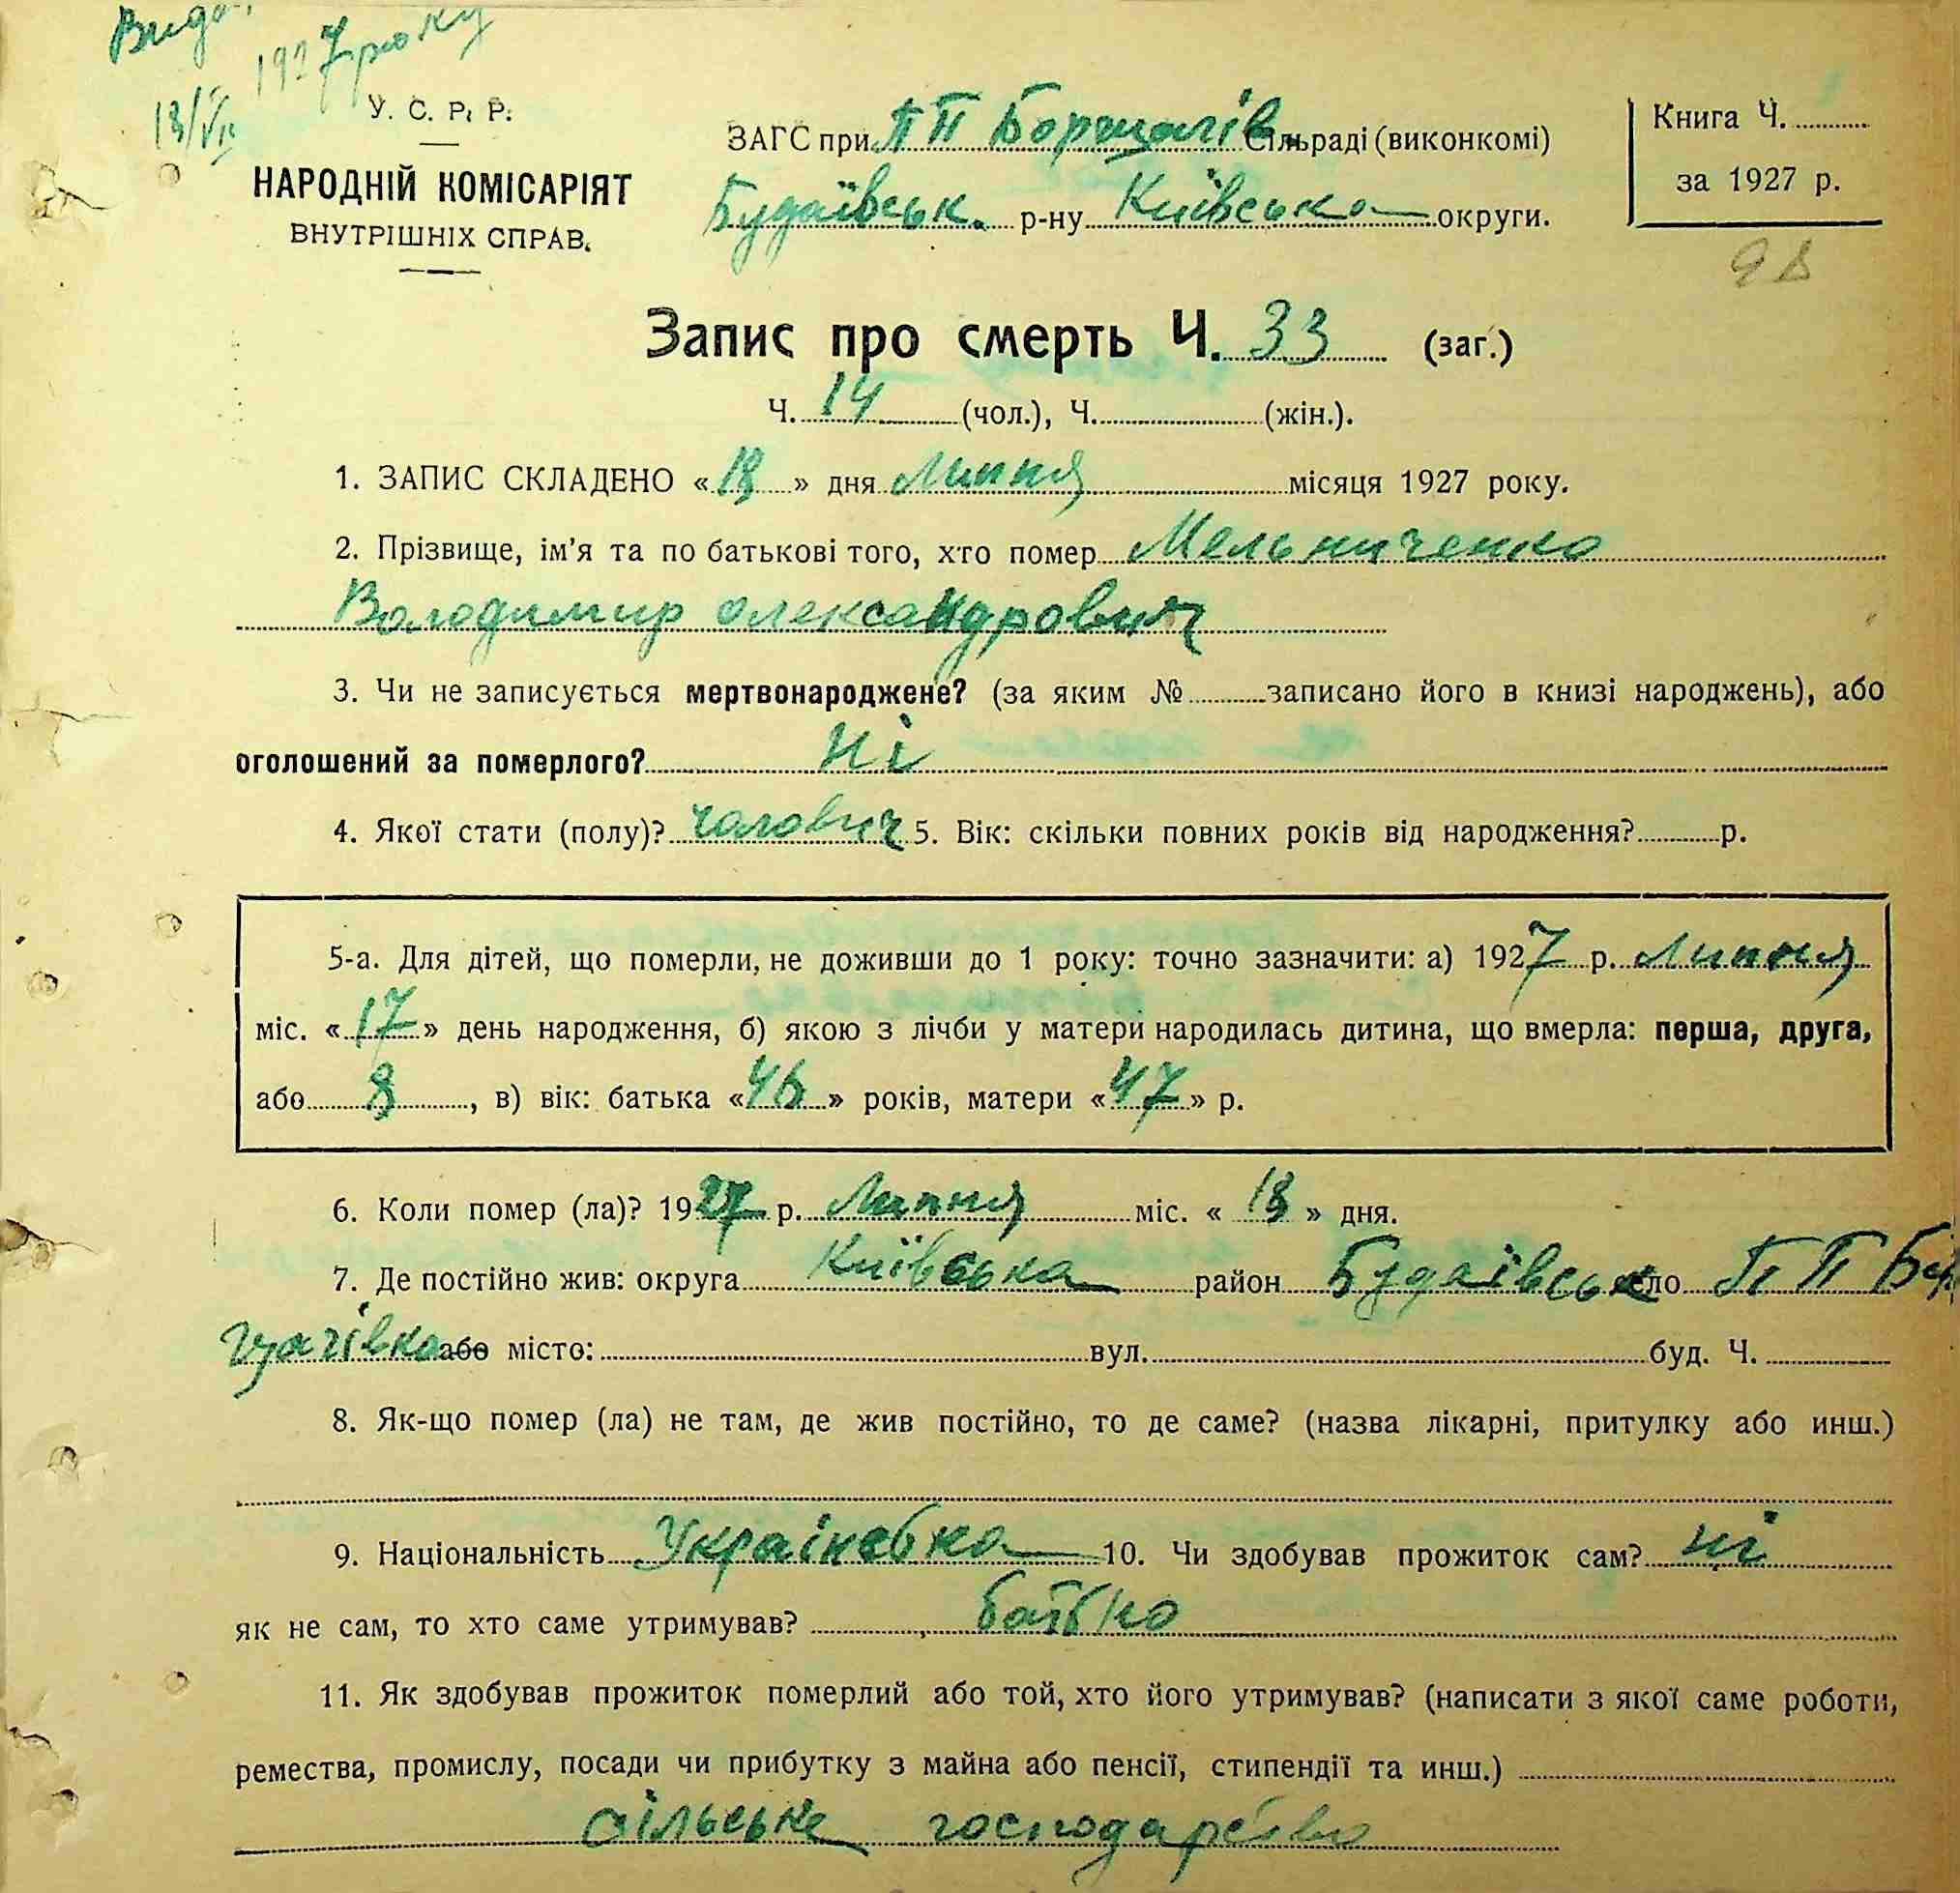 1927 року
13/VII
У. С. Р. Р.
НАРОДНІЙ КОМІСАРІЯТ
ВНУТРІШНІХ СПРАВ.
ЗАГС при ПП Борщагів Сільраді (виконкомі)
Будаївськ. р-ну Київська округи.
Книга Ч.
за 1927 р.
Запис про смерть Ч. 33 (заг.)
Ч. 14 (чол.), Ч. (жін.).
1. ЗАПИС СКЛАДЕНО «18» дня Липня місяця 1927 року.
2. Прізвище, ім'я та по батькові того, хто помер Мельниченко
Володимир Олександрович
3. Чи не записується мертвонароджене? (за яким № записано його в книзі народжень), або
оголошений за померлого? Ні
4. Якої стати (полу)? чолович 5. Вік: скільки повних років від народження? р.
5-а. Для дітей, що померли, не доживши до 1 року: точно зазначити: а) 1927 р. Липня
міс. «17» день народження, б) якою з лічби у матери народилась дитина, що вмерла: перша, друга,
або 8, в) вік: батька «46» років, матери «47» р.
6. Коли помер (ла)? 1927 р. Липня міс. «18» дня.
7. Де постійно жив: округа Київська район Будаївськ село ПП Бор
щагівка або місто: вул. буд. Ч.
8. Як-що помер (ла) не там, де жив постійно, то де саме? (назва лікарні, притулку або инш.)
9. Національність Українська 10. Чи здобував прожиток сам? ні
як не сам, то хто саме утримував? батько
11. Як здобував прожиток померлий або той, хто його утримував? (написати з якої саме роботи,
ремества, промислу, посади чи прибутку з майна або пенсії, стипендії та инш.)
сільське господарство